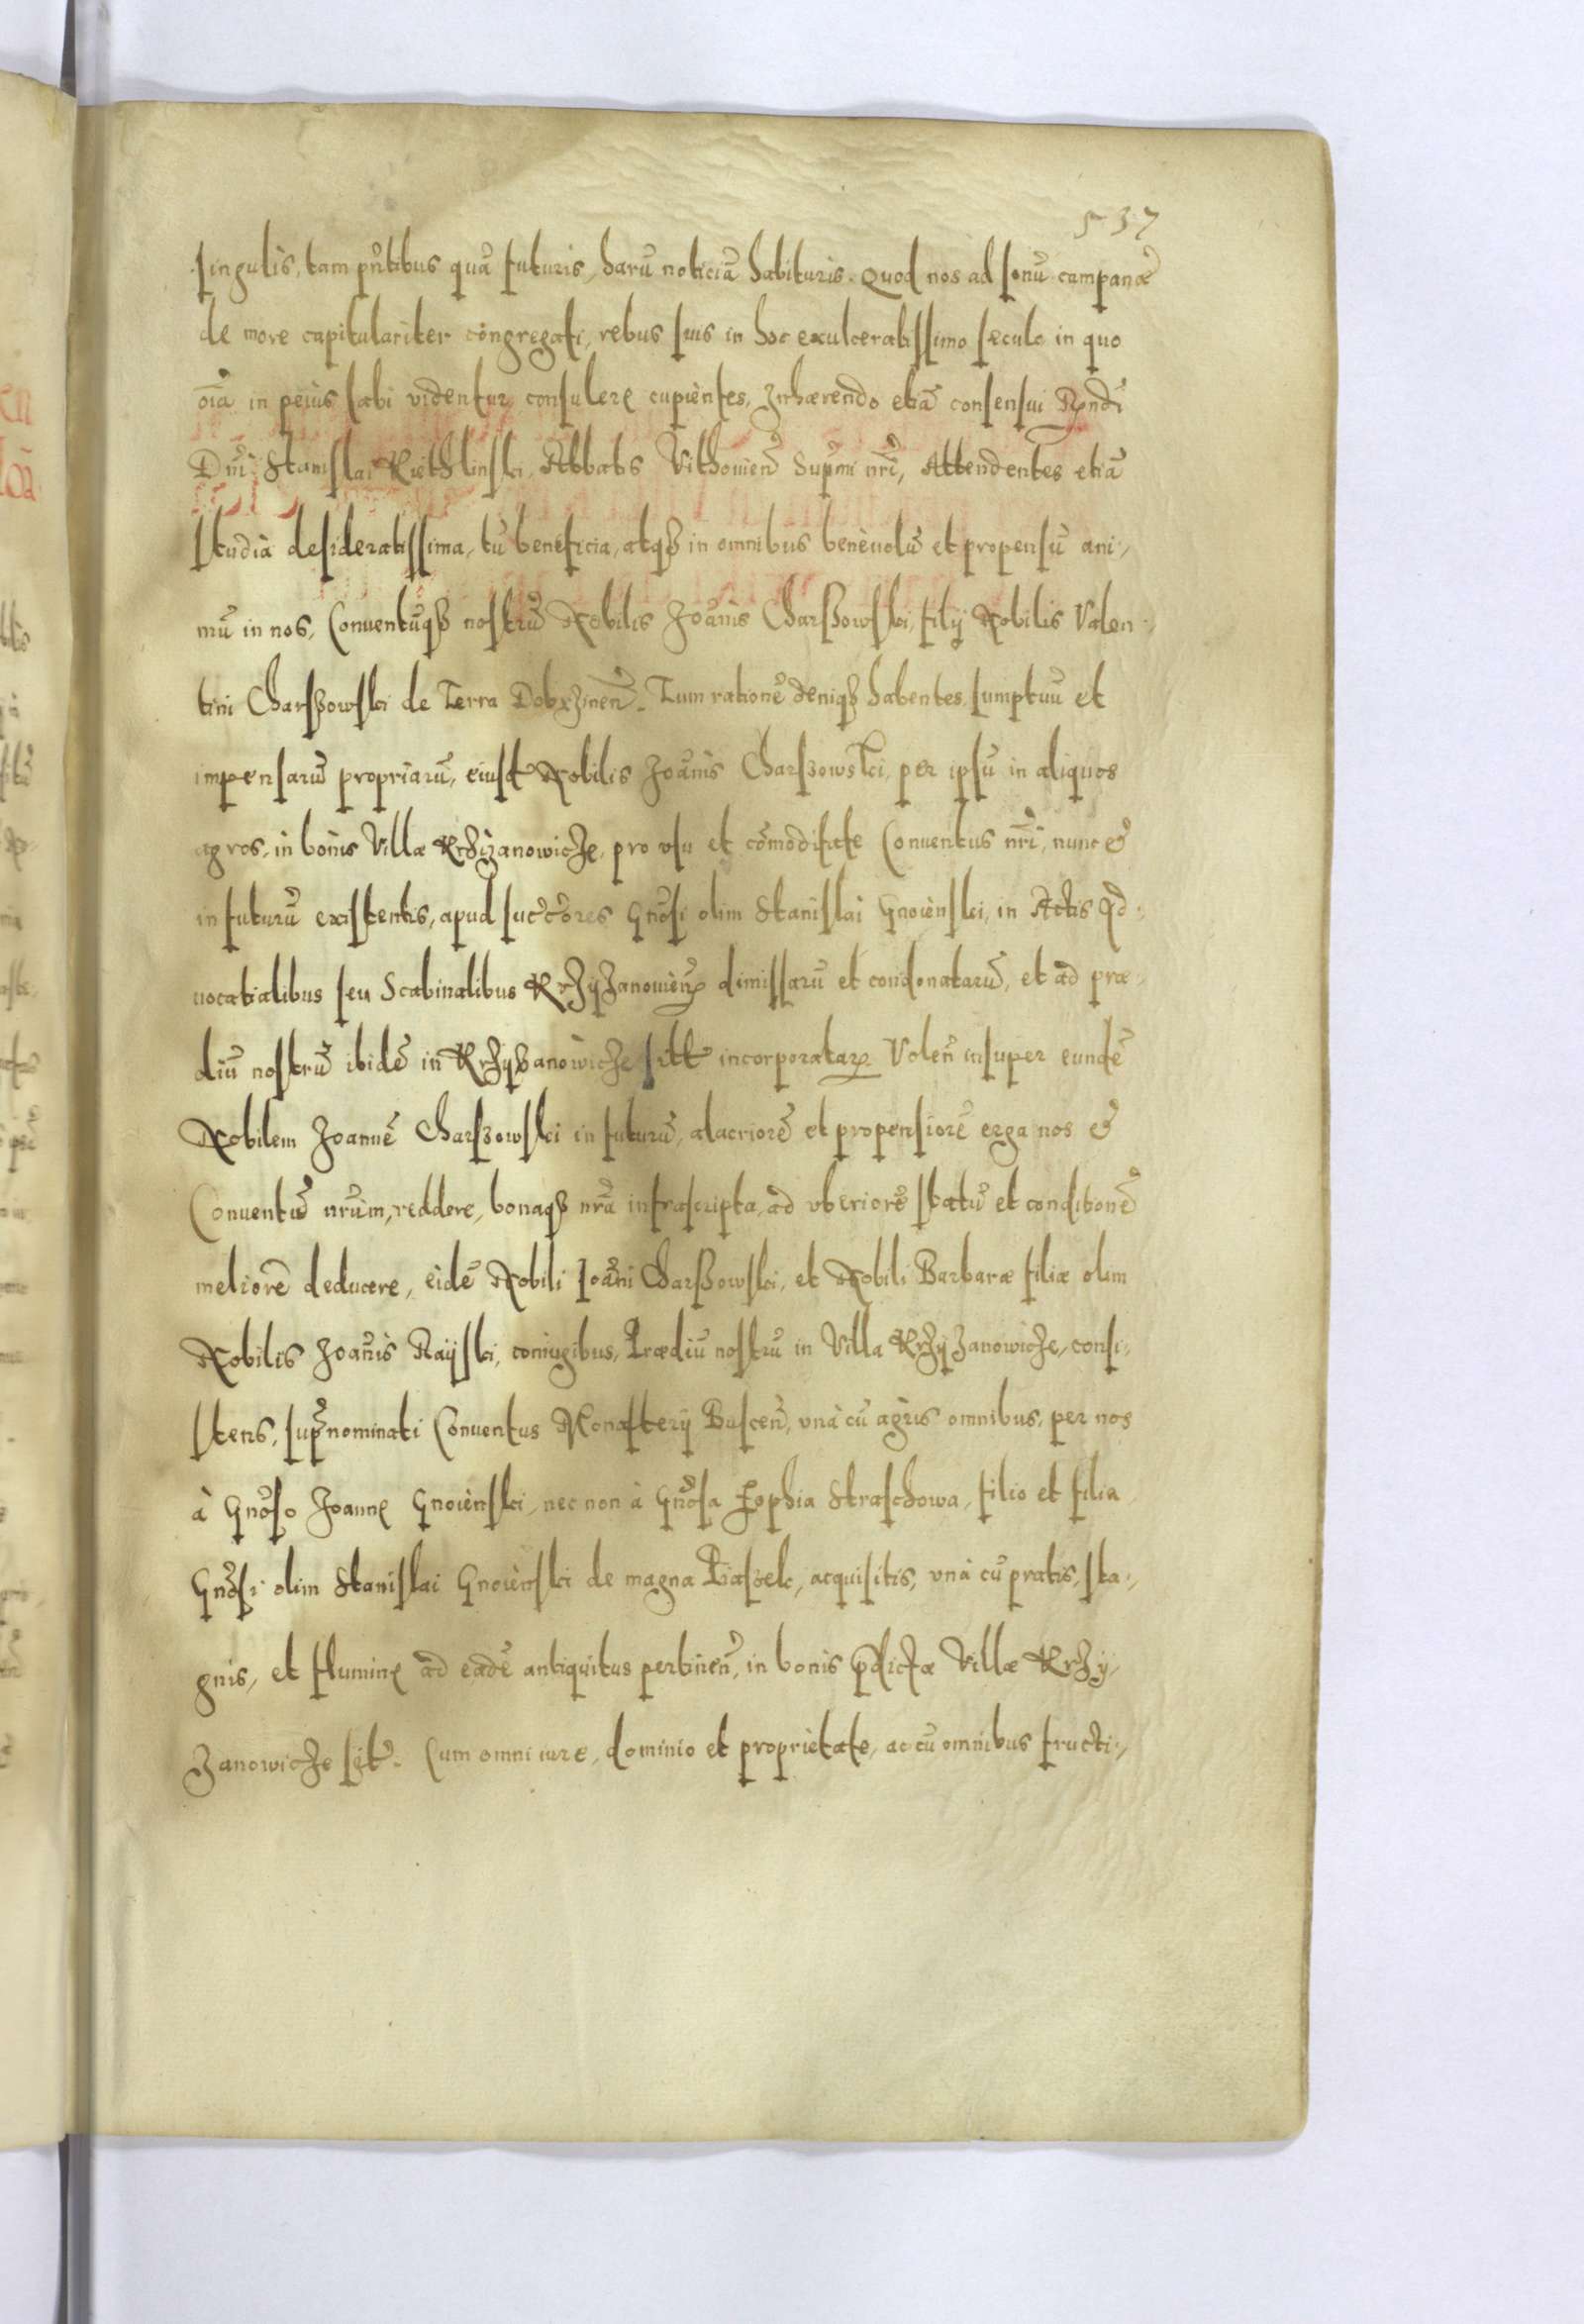 537
singulis, tam pñtibus quã futuris, harũ noticiã habituris. Quod nos ad sonũ campanæ
de more capitulariter congregati, rebus suis in hoc exulceratissimo sæculo in quo
oĩa in peius labi videntur, consulere cupientes, Inhærendo etiã consensui Rndi
Dni Stanislai Kiethlinski Abbatis Vithovieñ Supmi nri, Attendentes etiã
studia desideratissima, tũ beneficia, atqʒ in omnibus benèuolũ et propensũ ani-
mũ in nos, Conuentũqʒ nostrũ Nobilis Joãnis Charßowski, filij Nobilis Valen-
tini Charßowski de Terra Dobrzineñ. Tum rationẽ deniqʒ habentes, sumptuũ et
impensarũ propriarũ, eiusd Nobilis Joãnis Charszowski, per ipsũ in aliquos
agros, in bonis Villæ Krzizanowicze, pro vsu et cõmoditate Conuentus nri, nunc &
in futurũ existentis, apud succẽores Gnõsi olim Stanislai Gnoienski, in Actis Ad-
uocatialibus seu Scabinalibus Krzyzanouieñ dimissarũ et condonatarũ, et ad præ-
diũ nostrũ ibidẽ in Krzyßanowicze sitt incorporatar. Voleñ insuper eundẽ
Nobilem Joannẽ Charszowski in futurũ, alacriorẽ et propensiorẽ erga nos &
Conuentũ nrũm, reddere, bonaqʒ nrã infrascripta, ad vberiorẽ statũ et conditionẽ
meliorẽ deducere, eidẽ Nobili Ioãni Charßowski, et Nobili Barbaræ filiæ olim
Nobilis Joãnis Rayski, coniugibus, Prædiũ nostrũ in Villa Krzyzanowicze, consi-
stens, supnominati Conuentus Monasterij Busceñ, vnà cũ agris omnibus, per nos
à Gnõso Joanne Gnoienski, nec non à Gnõsa Zophia Straschowa, filio et filia
Gnõsi olim Stanislai Gnoienski de magna Piaszek, acquisitis, vnà cũ pratis, sta-
gnis, et flumine ad eadẽ antiquitus pertineñ, in bonis pdictæ Villæ Krzy-
zanowicze sit. Cum omni iure, dominio et proprietate, ac cũ omnibus fructi-